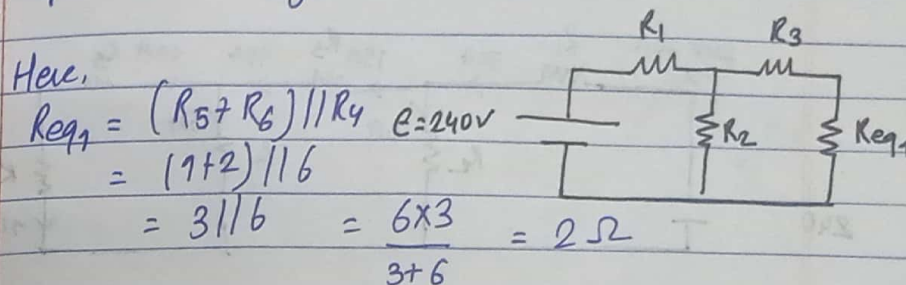 Here,
Req₁ = (R5+R6)||R4
= (1+2)||6
= 3||6 = 6×3/3+6 = 2Ω
R1 R3
e=240v
R2 Req₁